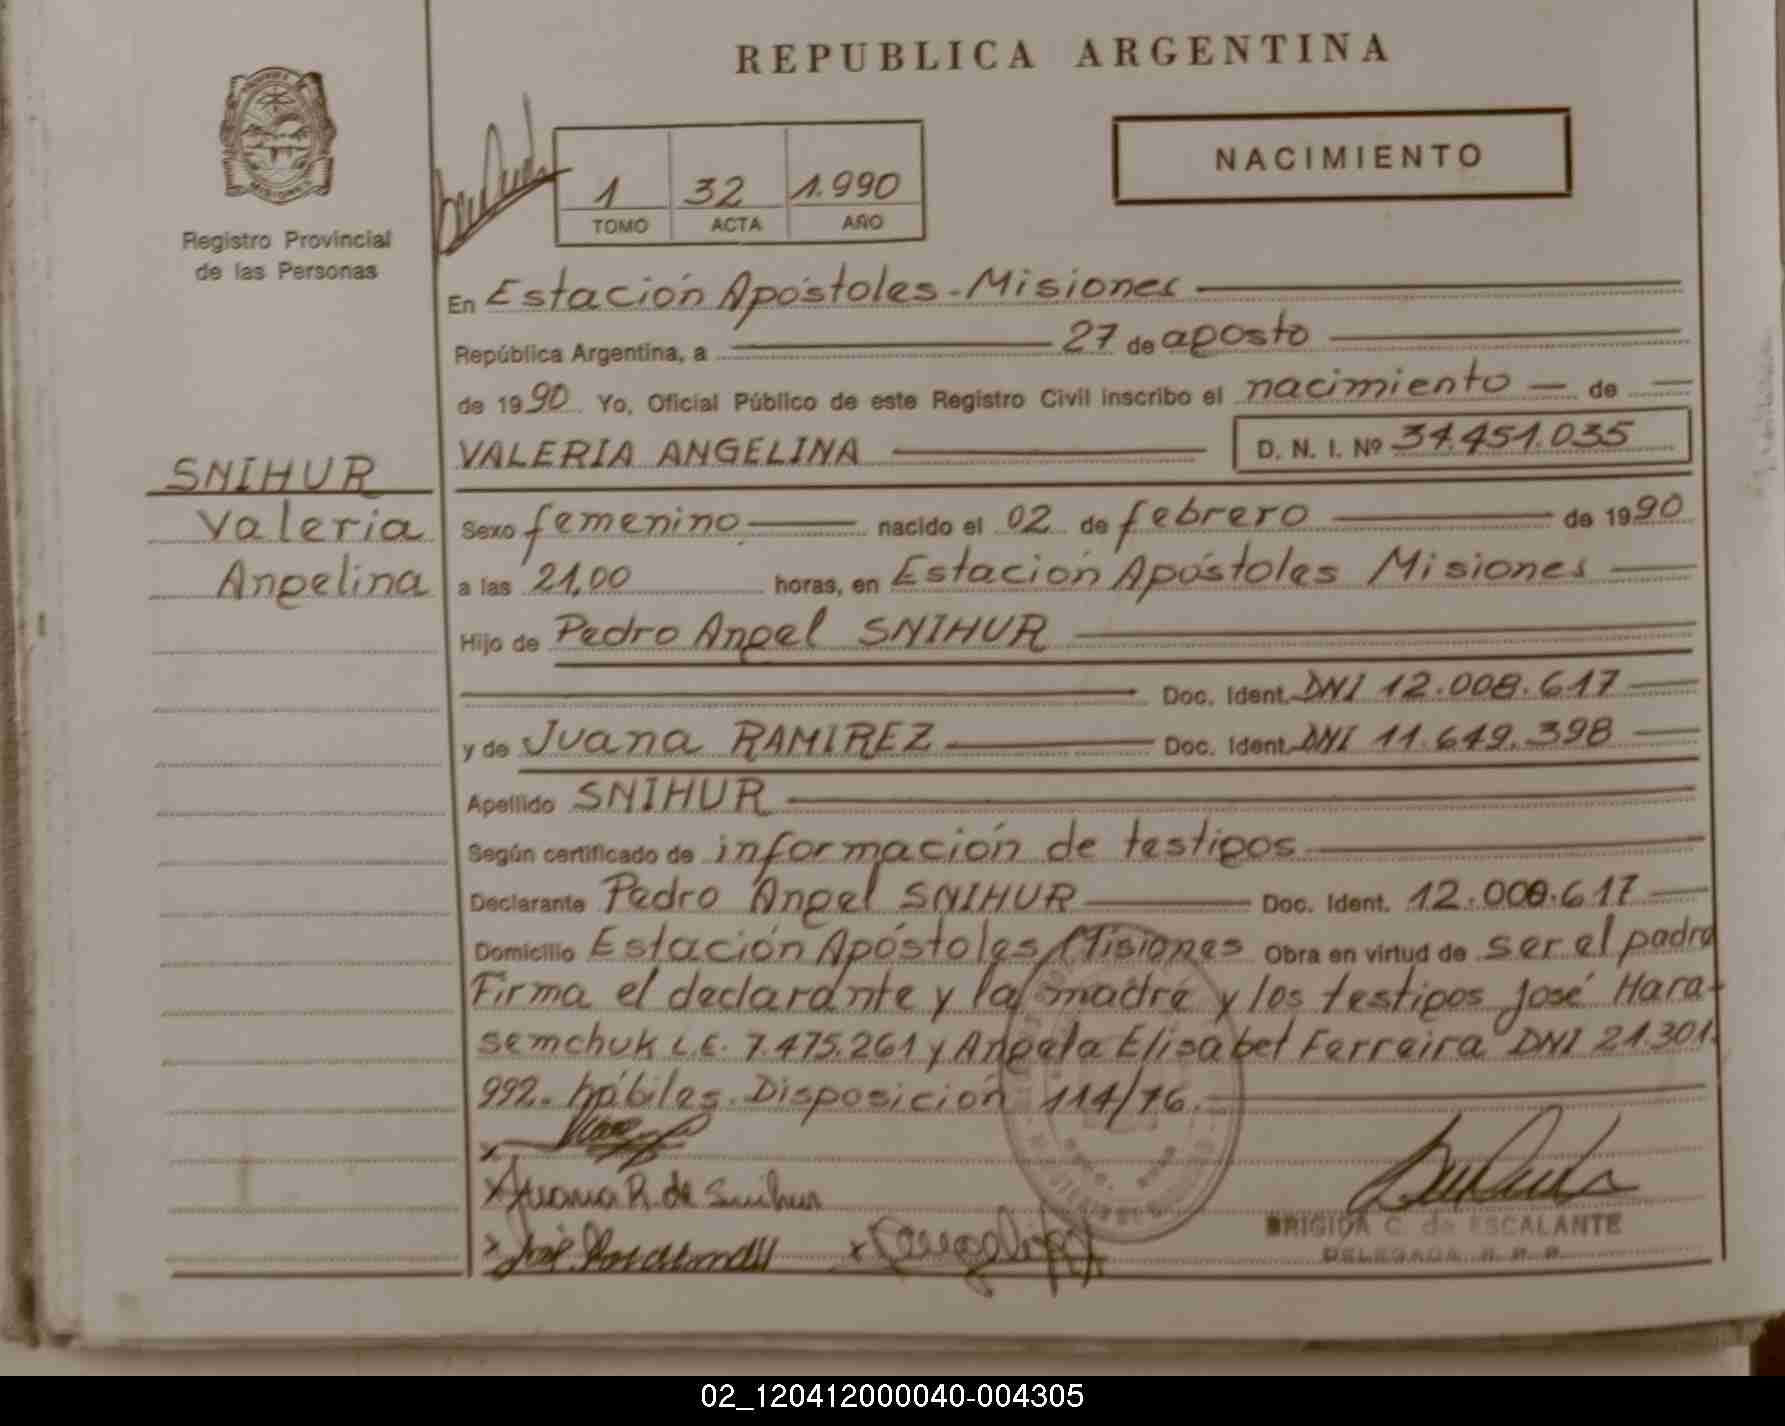 REPUBLICA ARGENTINA
NACIMIENTO
1 32 1.990
TOMO ACTA AÑO
Registro Provincial
de las Personas
En Estación Apóstoles - Misiones
República Argentina, a 27 de agosto
de 1990 Yo, Oficial Público de este Registro Civil inscribo el nacimiento de
VALERIA ANGELINA D. N. I. Nº 34.451.035
SNIHUR
Valeria
Angelina
Sexo femenino nacido el 02 de febrero de 1990
a las 21,00 horas, en Estación Apóstoles Misiones
Hijo de Pedro Angel SNIHUR
Doc. Ident. DNI 12.008.617
y de Juana RAMIREZ Doc. Ident. DNI 11.649.398
Apellido SNIHUR
Según certificado de información de testigos
Declarante Pedro Angel SNIHUR Doc. Ident. 12.008.617
Domicilio Estación Apóstoles, Misiones Obra en virtud de ser el padre
Firma el declarante y la madre y los testigos José Hara-
semchuk L.E. 7.475.261 y Angela Elisabet Ferreira DNI 21.301.
992. hábiles. Disposición 114/76.
x
x Juana R. de Snihur
x José x
BRIGIDA C. de ESCALANTE
DELEGADA R. P. P.
02_120412000040-004305